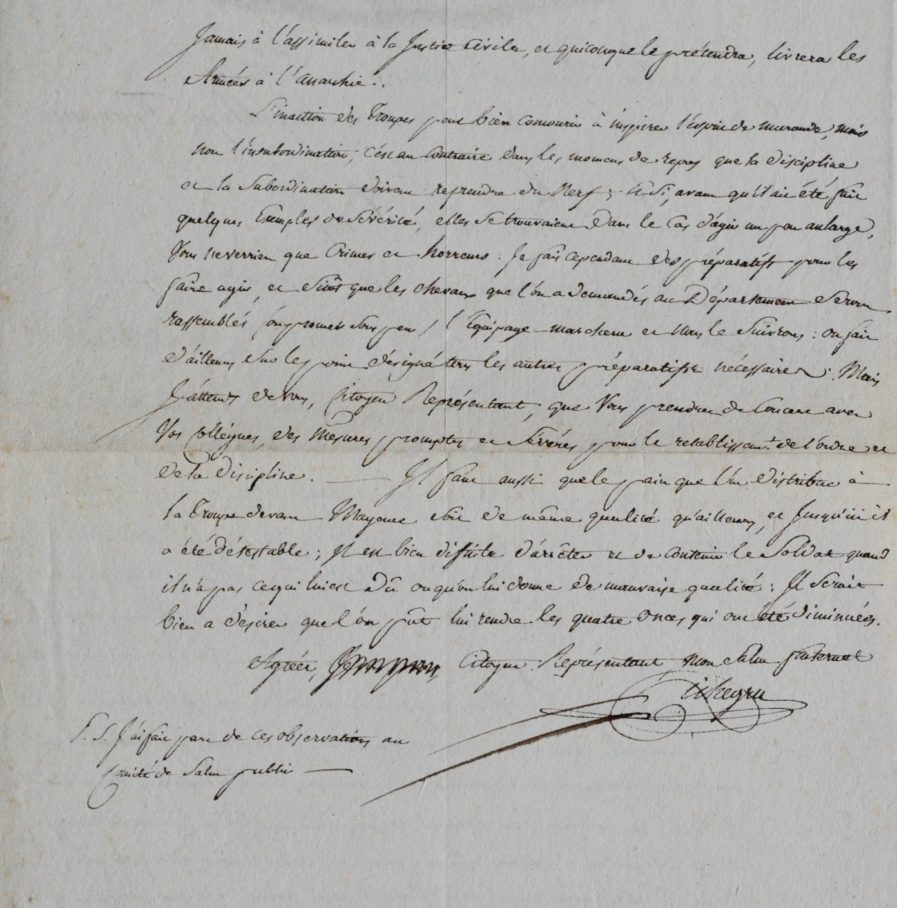 Jamais à l'assimiler à la Justice Civile, et quiconque le prétendra, livrera les
Armées à l'anarchie.
L'inaction des Troupes peut bien concourir à inspirer l'esprit de maraude, mais
non l'insubordination, c'est au contraire dans les momens de repos que la discipline
et la Subordination doivent reprendre du Nerf; et Si, avant qu'il ait été fait
quelques Exemples de Sévérité, elles se trouvaient dans le Cas d'agir un peu au large,
Vous ne verriez que Crimes et horreurs: Je fais cependant des préparatifs pour les
faire agir, et Sitôt que les chevaux que l'on a demandés au Département Seront
rassemblés (on promet Sous peu) l'Equipage marchera et Nous le Suivrons: on fait
d'ailleurs Sur les points désignés tous les autres préparatifs nécessaires. Mais
J'attends de vous, Citoyen Représentant, que Vous prendrez de Concert avec
Vos Collègues, des Mesures promptes et Sévères pour le retablissemt. de l'ordre et
de la discipline. — Il faut aussi que le pain que l'on distribue à
la Troupe devant Mayence soit de même qualité qu'ailleurs, et Jusqu'ici il
a été détestable; Il est bien difficile d'arrêter et de contenir le Soldat quand
il n'a pas ce qui lui est dû ou qu'on lui donne de mauvaise qualité: Il Serait
bien a désirer que l'on pût lui rendre les quatre onces qui ont été diminuées.
Agréez, Citoyen Représentant, mon Salut fraternel
Pichegru
P. S. J'ai fait part de ces observations au
Comité de Salut public —